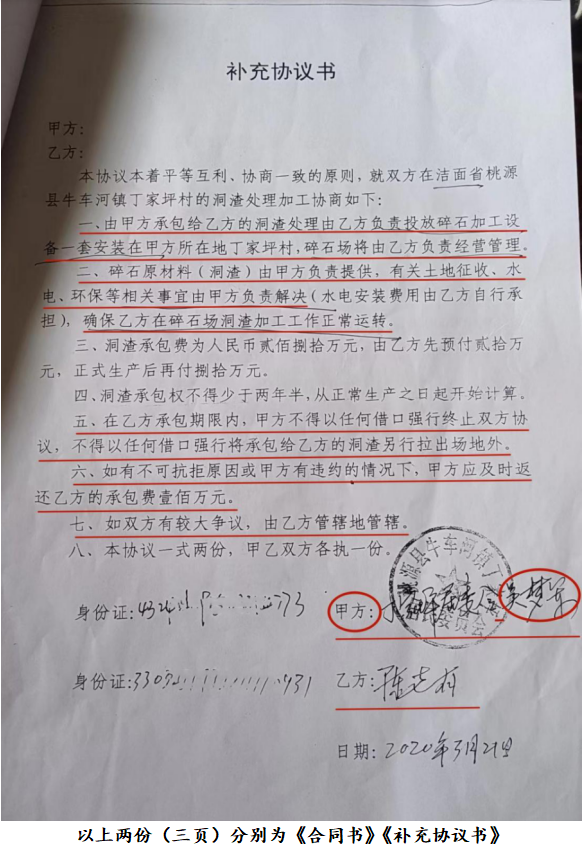 补充协议书
甲方：
乙方：
本协议本着平等互利、协商一致的原则，就双方在洁面省桃源
县牛车河镇丁家坪村的洞渣处理加工协商如下：
一、由甲方承包给乙方的洞渣处理由乙方负责投放碎石加工设
备一套安装在甲方所在地丁家坪村，碎石场将由乙方负责经营管理。
二、碎石原材料（洞渣）由甲方负责提供，有关土地征收、水
电、环保等相关事宜由甲方负责解决（水电安装费用由乙方自行承
担），确保乙方在碎石场洞渣加工工作正常运转。
三、洞渣承包费为人民币贰佰捌拾万元，由乙方先预付贰拾万
元，正式生产后再付捌拾万元。
四、洞渣承包权不得少于两年半，从正常生产之日起开始计算。
五、在乙方承包期限内，甲方不得以任何借口强行终止双方协
议，不得以任何借口强行将承包给乙方的洞渣另行拉出场地外。
六、如有不可抗拒原因或甲方有违约的情况下，甲方应及时返
还乙方的承包费壹佰万元。
七、如双方有较大争议，由乙方管辖地管辖。
八、本协议一式两份，甲乙双方各执一份。
桃源县牛车河镇丁
委员会
身份证：
甲方：
身份证：3303
乙方：
日期：2020年3月21日
以上两份（三页）分别为《合同书》《补充协议书》